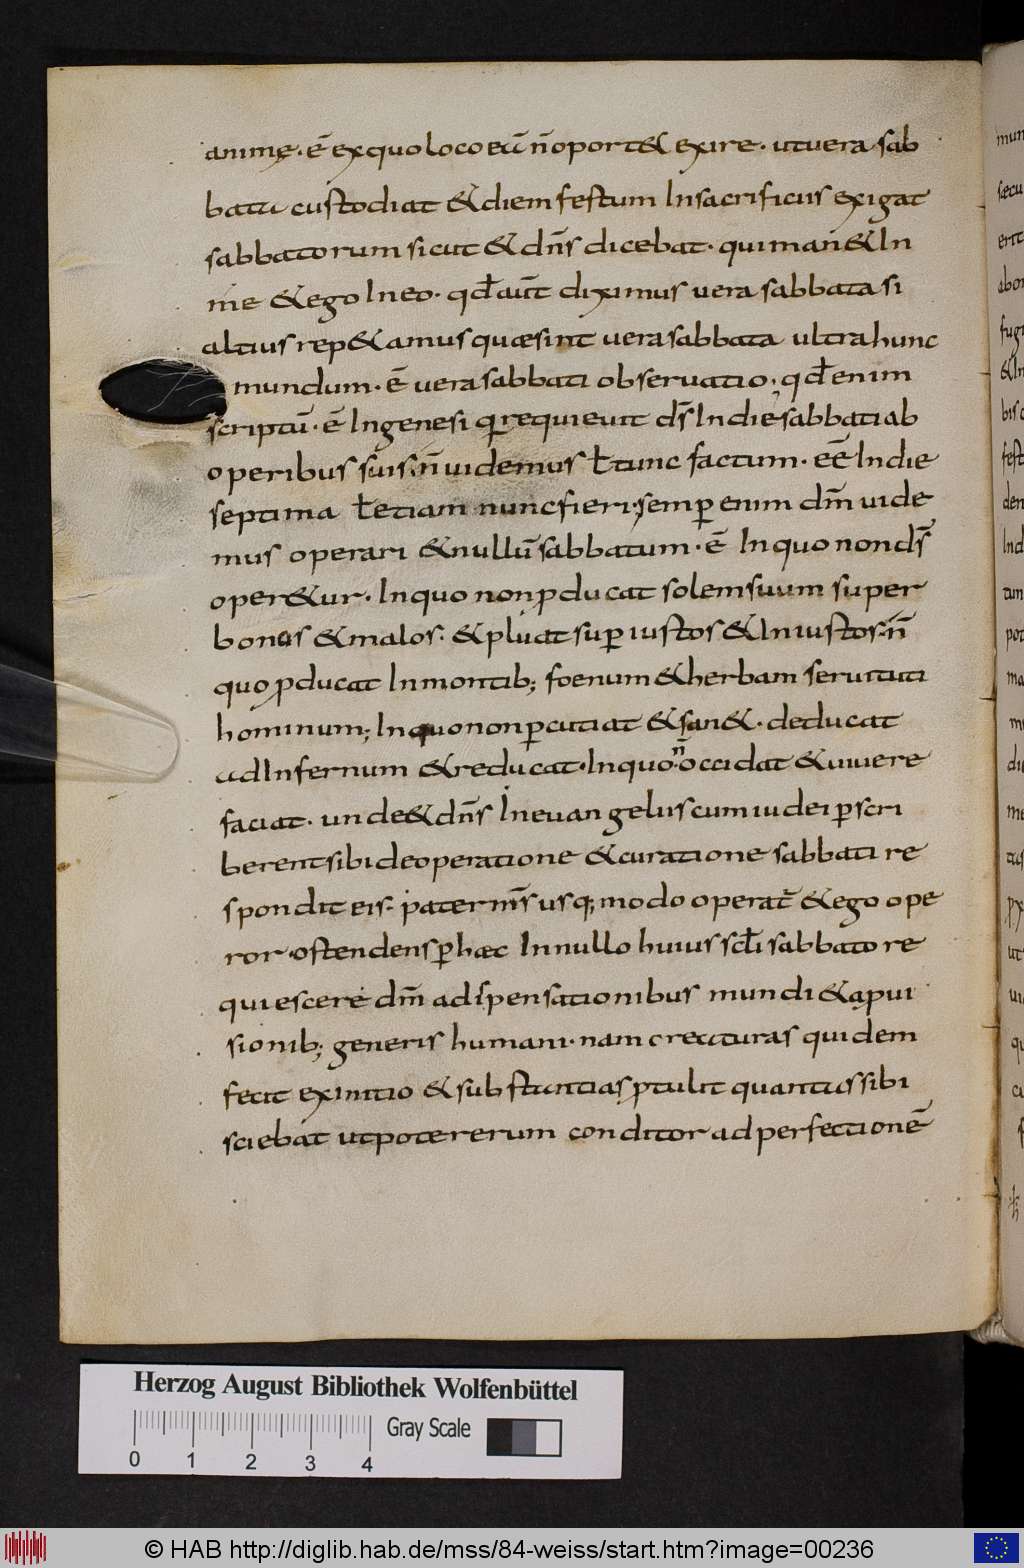 animę · ē ex quo loco eū n̄ oport& exire · ut uera sab
bata custodiat & diem festum In sacrificiis exigat
sabbatorum sicut & dn̄s dicebat · qui man& In
me & ego In eo · qđ aūt diximus uera sabbata si
altius rep&amus quæ sint uera sabbata ultra hunc
mundum · ē uera sabbati obseruatio · qđ enim
scriptū · ē In genesi requieuit dš In die sabbati ab
operibus suis · n̄ uidemus ł tunc factum · eē In die
septima ł etiam nunc fieri · semꝑ enim dm̄ uide
mus operari & nullū sabbatum · ē In quo non dš
oper&ur · In quo non ꝓducat solem suum super
bonos & malos · & pluat suꝑ iustos & Iniustos · n̄
quo ꝓducat In montib; foenum & herbam seruituti
hominum; In quo non ꝑcutiat & san& · deducat
ad Infernum & reducat · In quo n̄ occidat & uiuere
faciat · unde & dn̄s In euangeliis cum iudei ꝑscri
berent sibi de operatione & curatione sabbati re
spondit eis · pater ms̄ usq; modo operat̄ & ego ope
ror · ostendens ꝑ hæc In nullo huius scłi sabbato re
quiescere dm̄ a dispensationibus mundi & a ꝓui
sionib; generis humani · nam creaturas quidem
fecit ex initio & substantias ꝓtulit quantas sibi
sciebat ut pote rerum conditor ad perfectionē
Herzog August Bibliothek Wolfenbüttel
Gray Scale
0 1 2 3 4
© HAB http://diglib.hab.de/mss/84-weiss/start.htm?image=00236